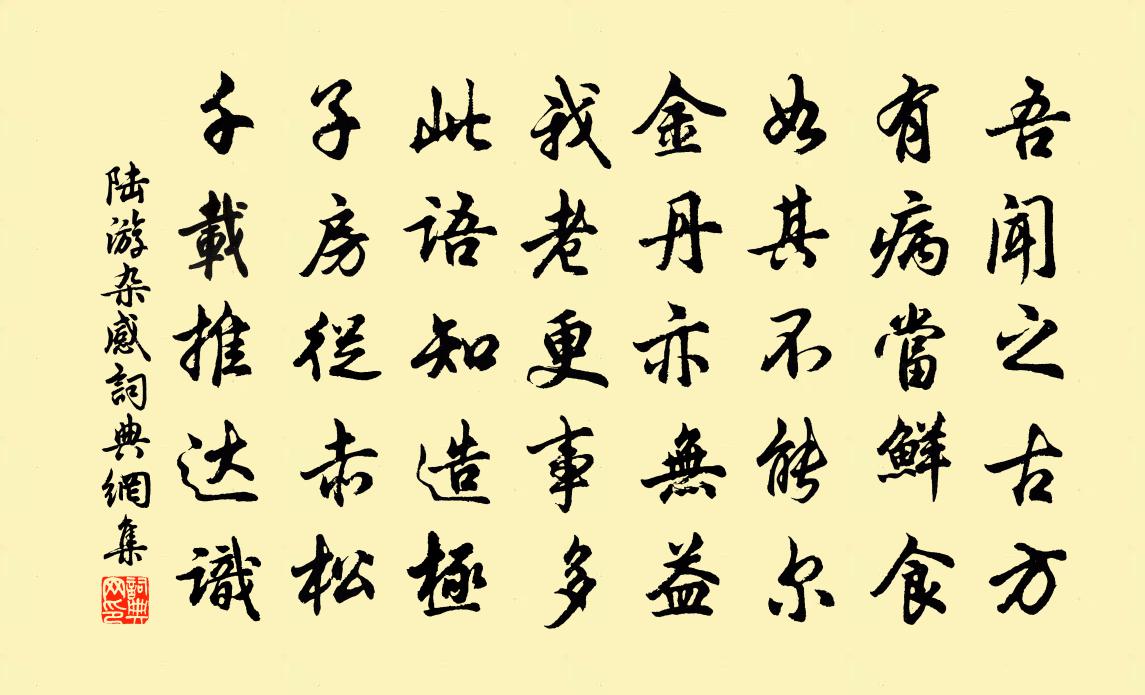 吾闻之古方
有病當鮮食
如其不能尔
金丹亦無益
我老更事多
此語知造極
子房從赤松
千載推达識
陆游杂感詞典網集
詞典网印